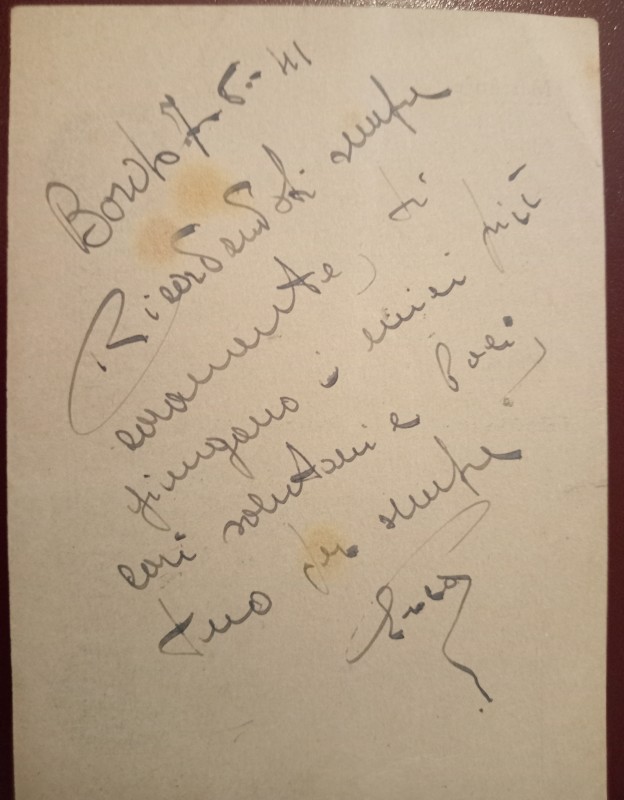 Bordo 7-5-41
Ricordandoti sempre
caramente, ti
giungano i miei più
cari saluti e baci,
tuo per sempre